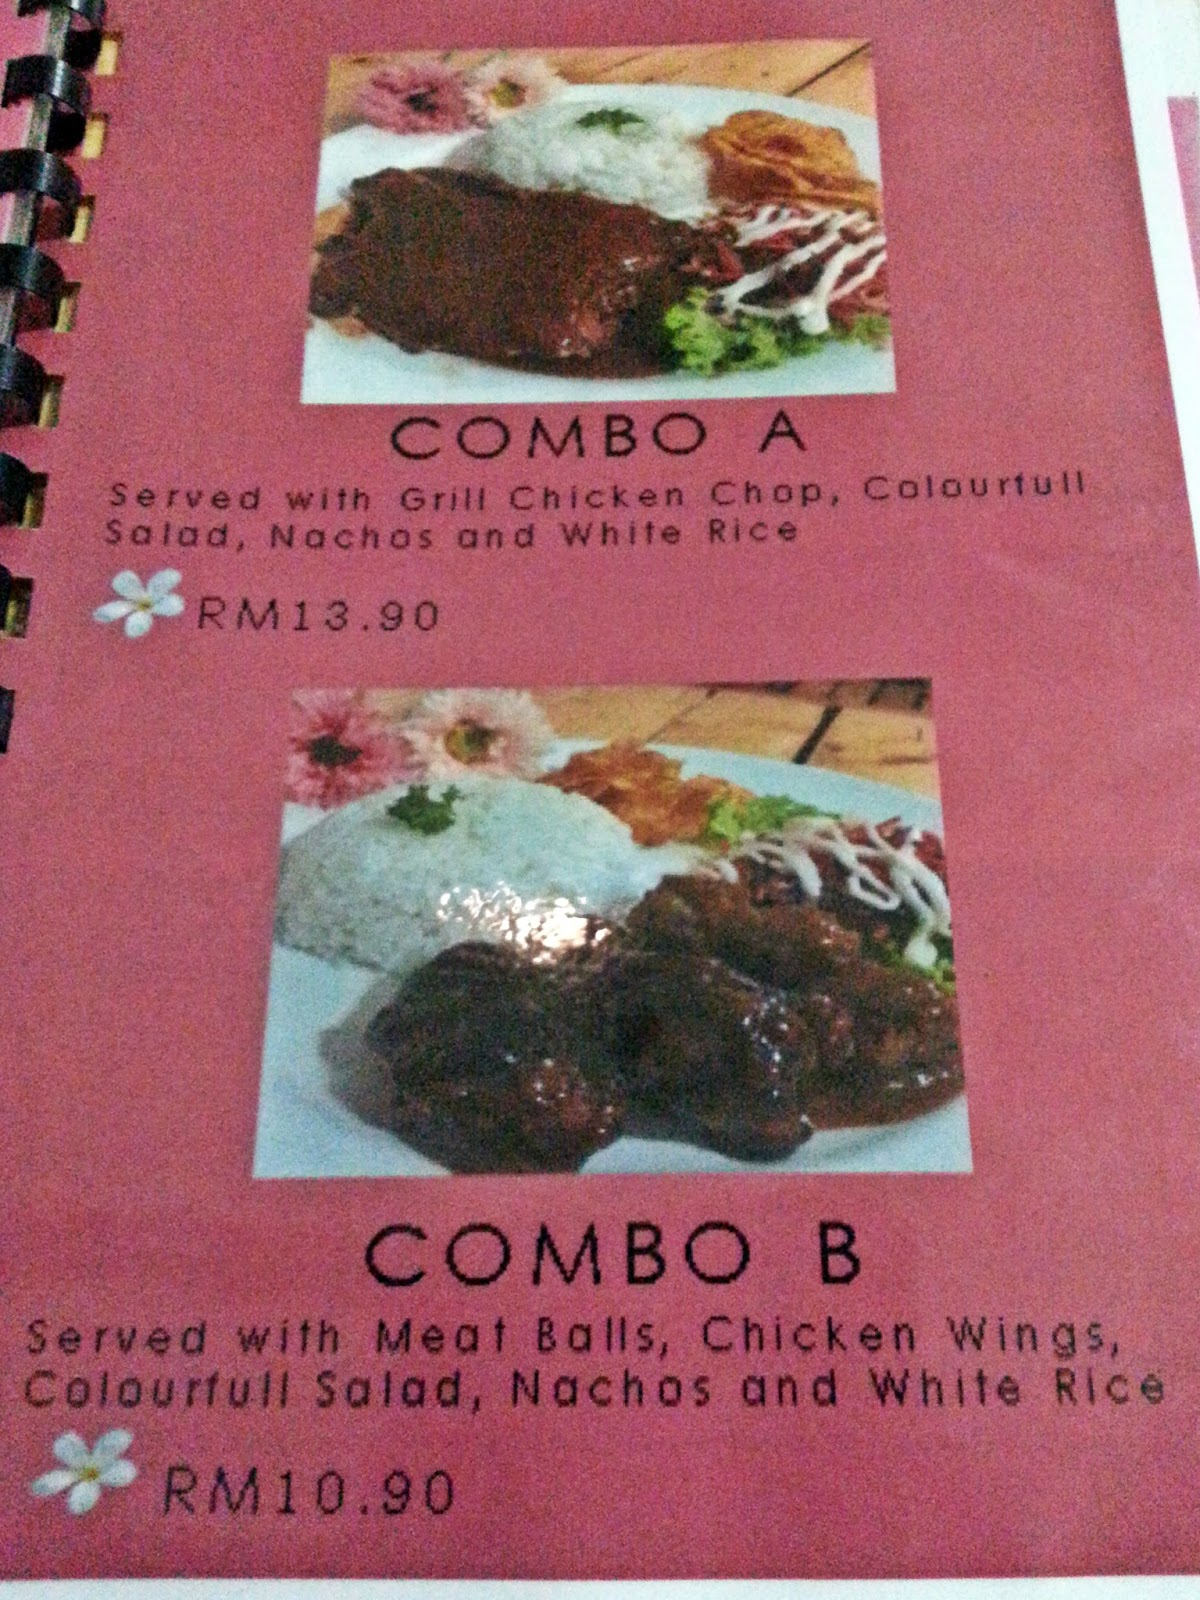 COMBO A
Served with Grill Chicken Chop, Colourfull
Salad, Nachos and White Rice
RM13.90
COMBO B
Served with Meat Balls, Chicken Wings,
Colourfull Salad, Nachos and White Rice
RM10.90